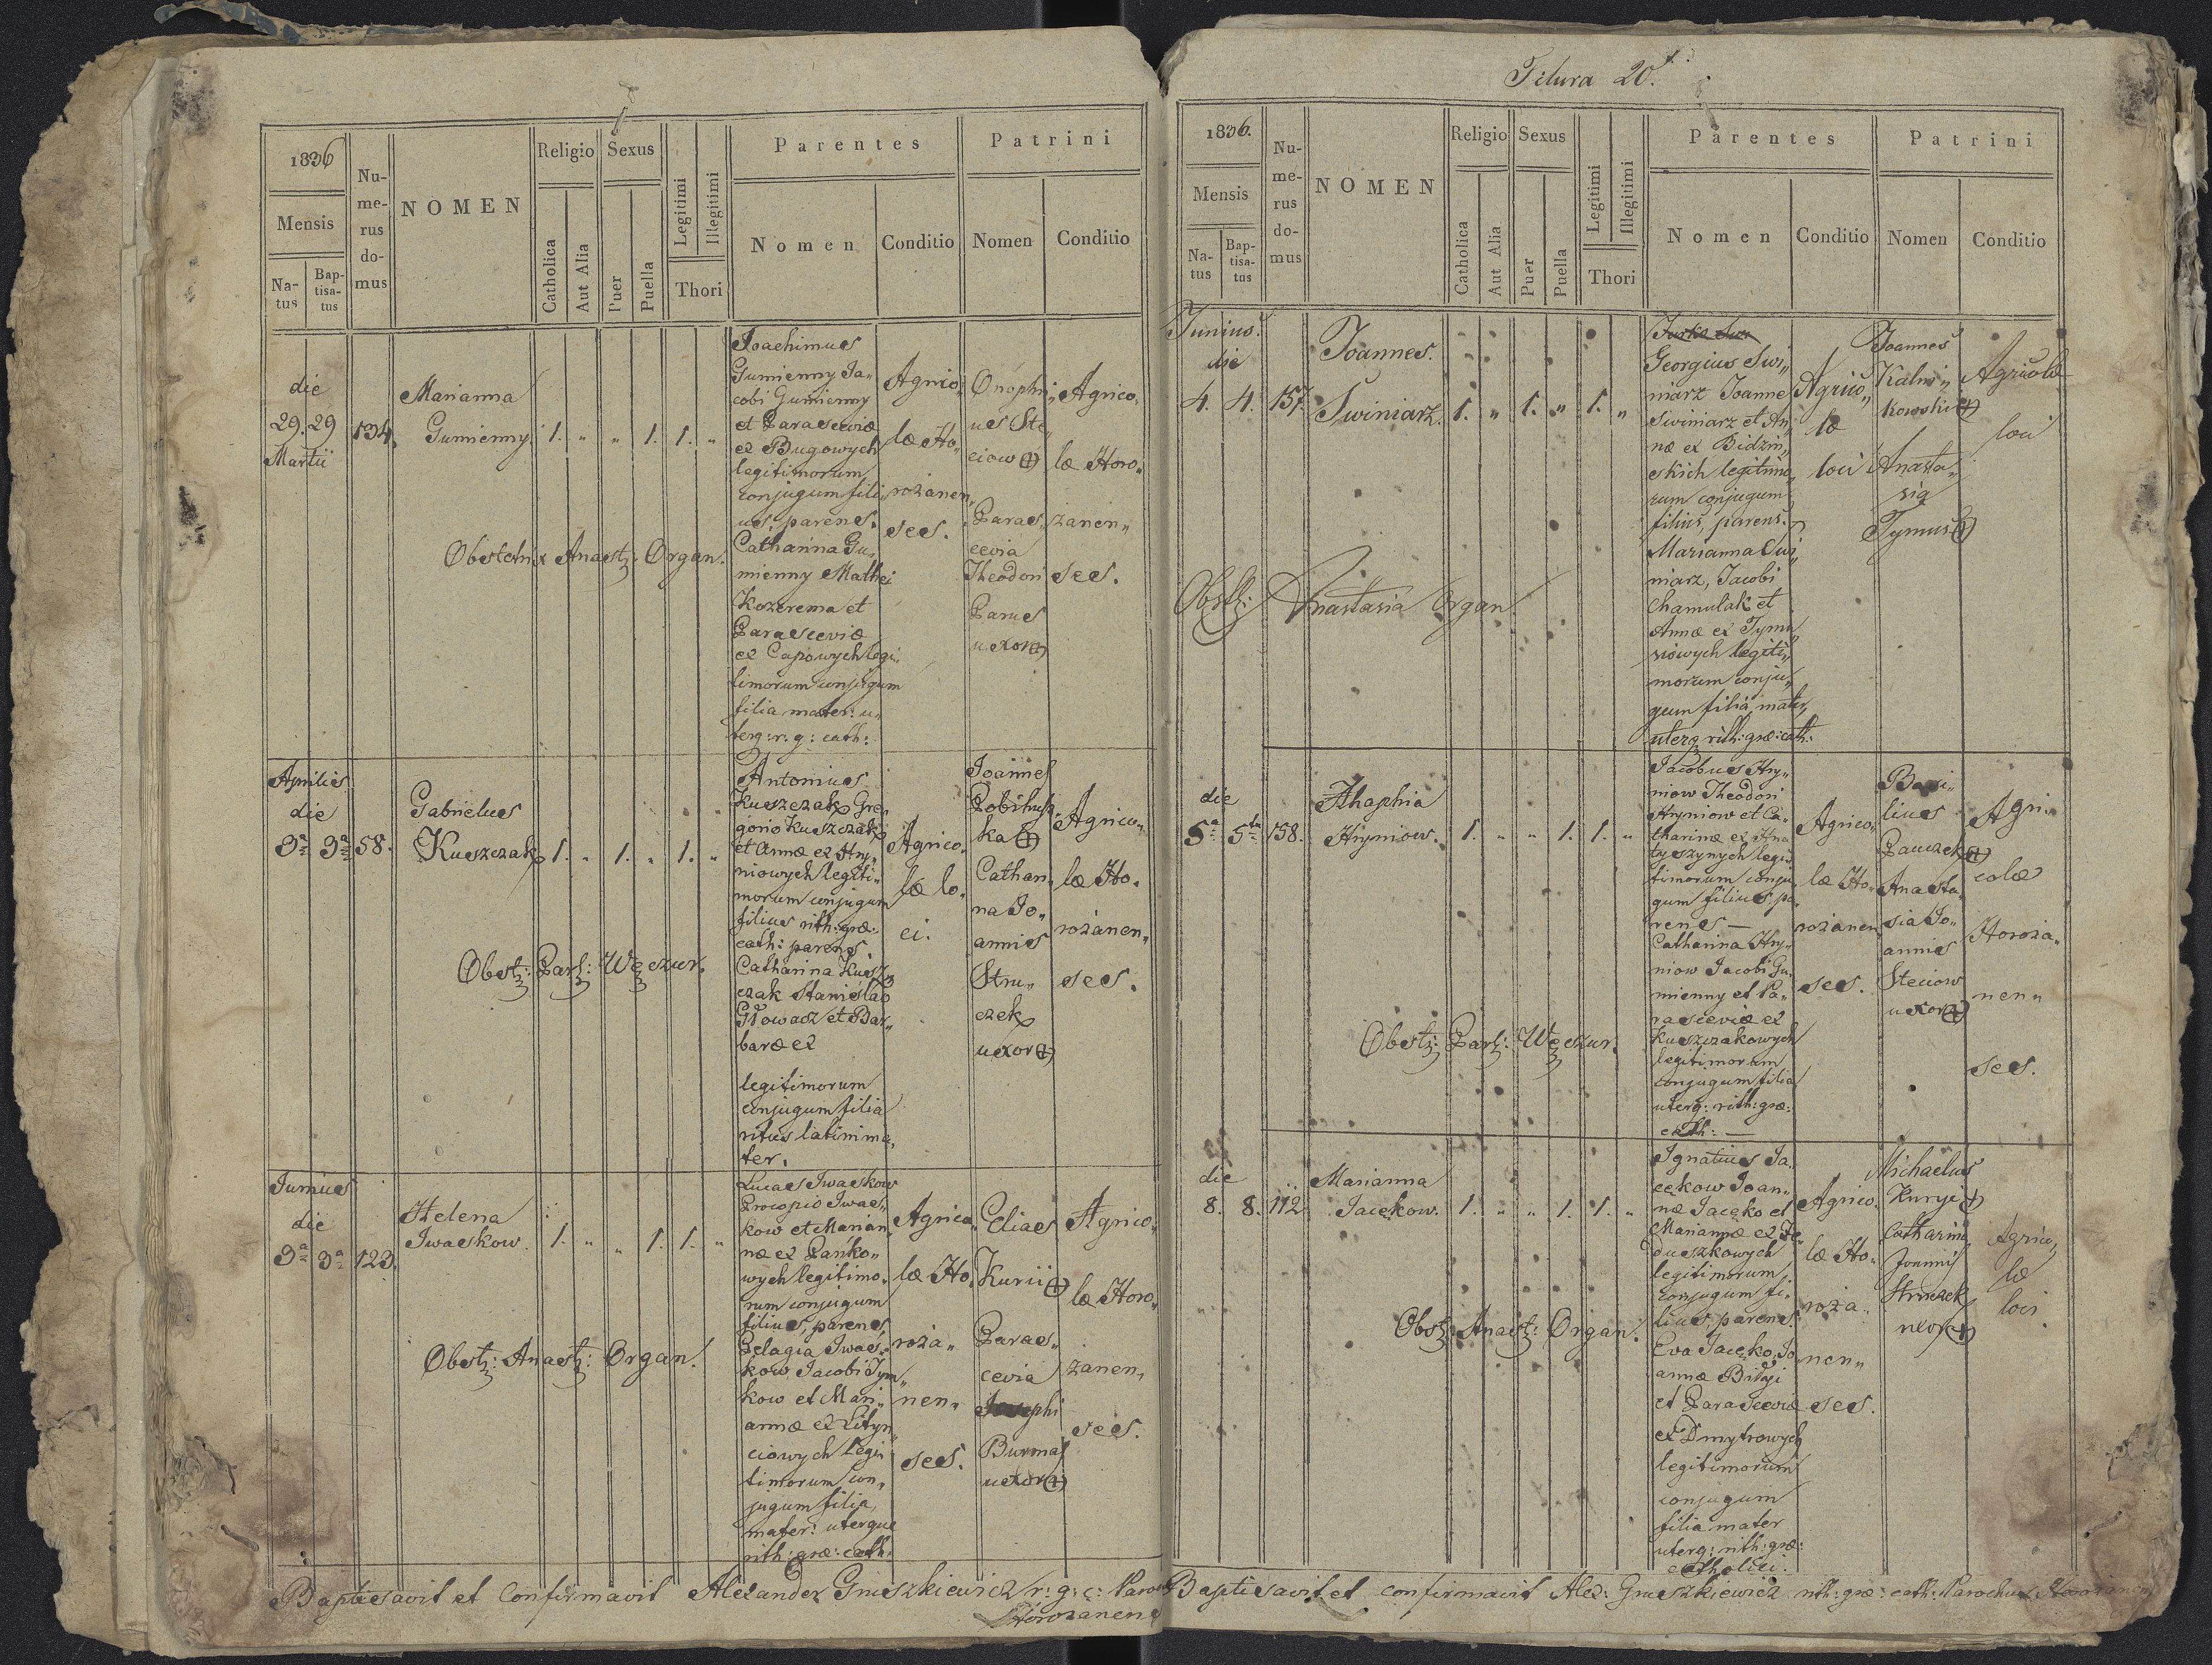 1836
Mensis
Na-
tus
Bap-
tisa-
tus
Nu-
me-
rus
do-
mus
NOMEN
Religio
Catholica
Aut Alia
Sexus
Puer
Puella
Legitimi
Illegitimi
Thori
Parentes
Nomen
Conditio
Patrini
Nomen
Conditio
die
29. 29
Martii
134.
Marianna
Gumienny
1. " " 1. 1. "
Obstetrix Anastz: Organ.
Joachimus
Gumienny Ja„
cobi Gumienny
et Parasceviæ
ex Bugowych
legitimorum
conjugum fili
us, parens.
Catharina Gu„
mienny Mathei
Kozerema et
Parasceviæ
ex Capowych legi„
timorum conjugum
filia mater: u„
terq: r: g: cath:
Agrico„
læ Ho„
rożanen„
ses.
Onophri„
us Ste„
ciow
Paras„
cevia
Theodori
Parus
uxor
Agrico„
læ Horo„
żanen„
ses.
Aprilis
die
3ª 3ª
58.
Gabrielus
Kuszczak
1. " 1. " 1. "
Obstz: Parz: Węczur.
Antonius
Kuszczak Gre„
gorio Kuszczak
et Annæ ex Hry„
niowych legiti„
morum conjugum
filius rith: græ:
cath: parens.
Catharina Kusz„
czak Stanislao
Głowacz et Bar„
baræ ex
legitimorum
conjugum filia
ritus latini ma„
ter.
Agrico„
læ lo„
ci.
Joannes
ka
Cathari„
na Jo„
annis
Stru„
czek
uxor
Agrico„
læ Ho„
rożanen„
ses.
Junius
die
3ª 3ª
123.
Helena
Iwaskow.
1. " " 1. 1. "
Obstz: Anastz: Organ.
Lucas Iwaskow
Procopio Iwas„
kow et Marian„
næ ex Pańko„
wych legitimo„
rum conjugum
filius, parens,
Pelagia Iwas„
kow, Jacobi Tym„
kow et Mari„
annæ ex Lityn„
ciowych legi„
timorum con„
jugum filia,
mater: uterque
rith: græ: cath:
Agrico„
læ Ho„
roża„
nen„
ses.
Elias
Kurii
Paras„
cevia
Josephi
Burmas
uxor
Agrico„
læ Horo„
żanen„
ses.
Baptisavit et Confirmavit Alexander Gruszkiewicz r: g: c: Paroch
Horożanens
Titura 20.
1836.
Mensis
Na-
tus
Bap-
tisa-
tus
Nu-
me-
rus
do-
mus
NOMEN
Religio
Catholica
Aut Alia
Sexus
Puer
Puella
Legitimi
Illegitimi
Thori
Parentes
Nomen
Conditio
Patrini
Nomen
Conditio
Junius.
die
4. 4.
157.
Joannes.
Swiniarz.
1. " 1. " 1. "
Obstz: Anastasia Organ
Georgius Swi„
niarz Joanne
Swiniarz et An„
næ ex Bidzin„
skich legitimo„
rum conjugum
filius, parens.
Marianna Swi„
niarz, Jacobi
Chamulak et
Annæ ex Tymu„
siowych legiti„
morum conju„
gum filia, mater,
uterq rith: græ: cath:
Agrico„
læ
loci
Joannes
Kalni„
kowski
Anasta„
sia
Tymus
Agricolæ
loci
die
5ª 5ta
158.
Ahaphia
Hryniow.
1. " " 1. 1. "
Obstz: Parz: Węczur.
Jacobus Hry„
niow Theodori
Hryniow et Ca„
tharinæ ex Hna„
tyszynych legi„
timorum conju„
gum filius, pa„
rens —
Catharina Hry„
niow Jacobi Gu„
mienny et Pa„
rasceviæ ex
Kuszczakowych
legitimorum
conjugum filia
uterq: rith: græ:
cath: —
Agrico„
læ Ho„
rożanen„
ses.
Basi„
lius
Pauczek
Anasta„
sia Jo„
annis
Steciow
uxor
Agri„
colæ
Horoża„
nen„
ses.
die
8. 8.
112
Marianna
Jacękow.
1. " " 1. 1. "
Obstz: Anastz: Organ.
Ignatius Ja„
cękow Joan„
næ Jacęko et
Mariannæ ex Fe„
duszkowych
legitimorum
conjugum fi„
lius, parens.
Eva Jacęko, Jo„
annæ Bidyi
et Parasceviæ
ex Dmytrowych
legitimorum
conjugum
filia mater
uterq: rith: græ:
catholici.
Agrico„
læ Ho„
roża„
nen„
ses.
Michaelus
Kuryi
Catharina
Joannis
Struczek
uxor
Agrico„
læ
loci.
Baptisavit et confirmavit Alex: Gruszkiewicz rith: græ: cath: Parochus Horożanen